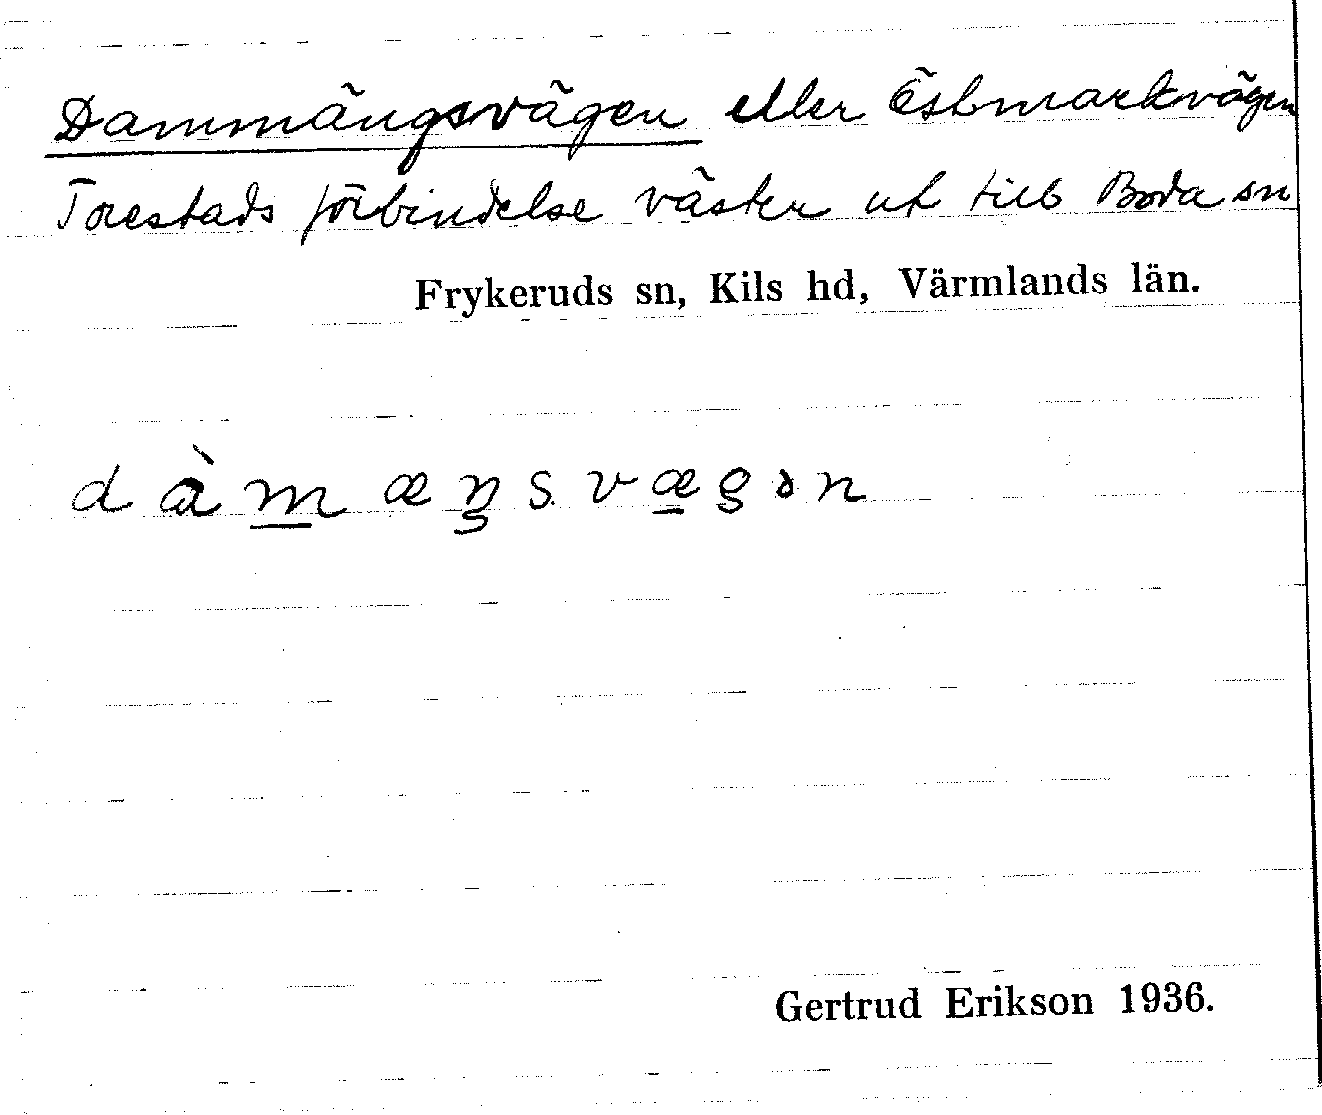 Dammängsvägen eller Östmarkvägen
Torestads förbindelse väster ut till Boda sn
Frykeruds sn, Kils hd, Värmlands län.
dàm̲æŋsvæ̲gən
Gertrud Erikson 1936.